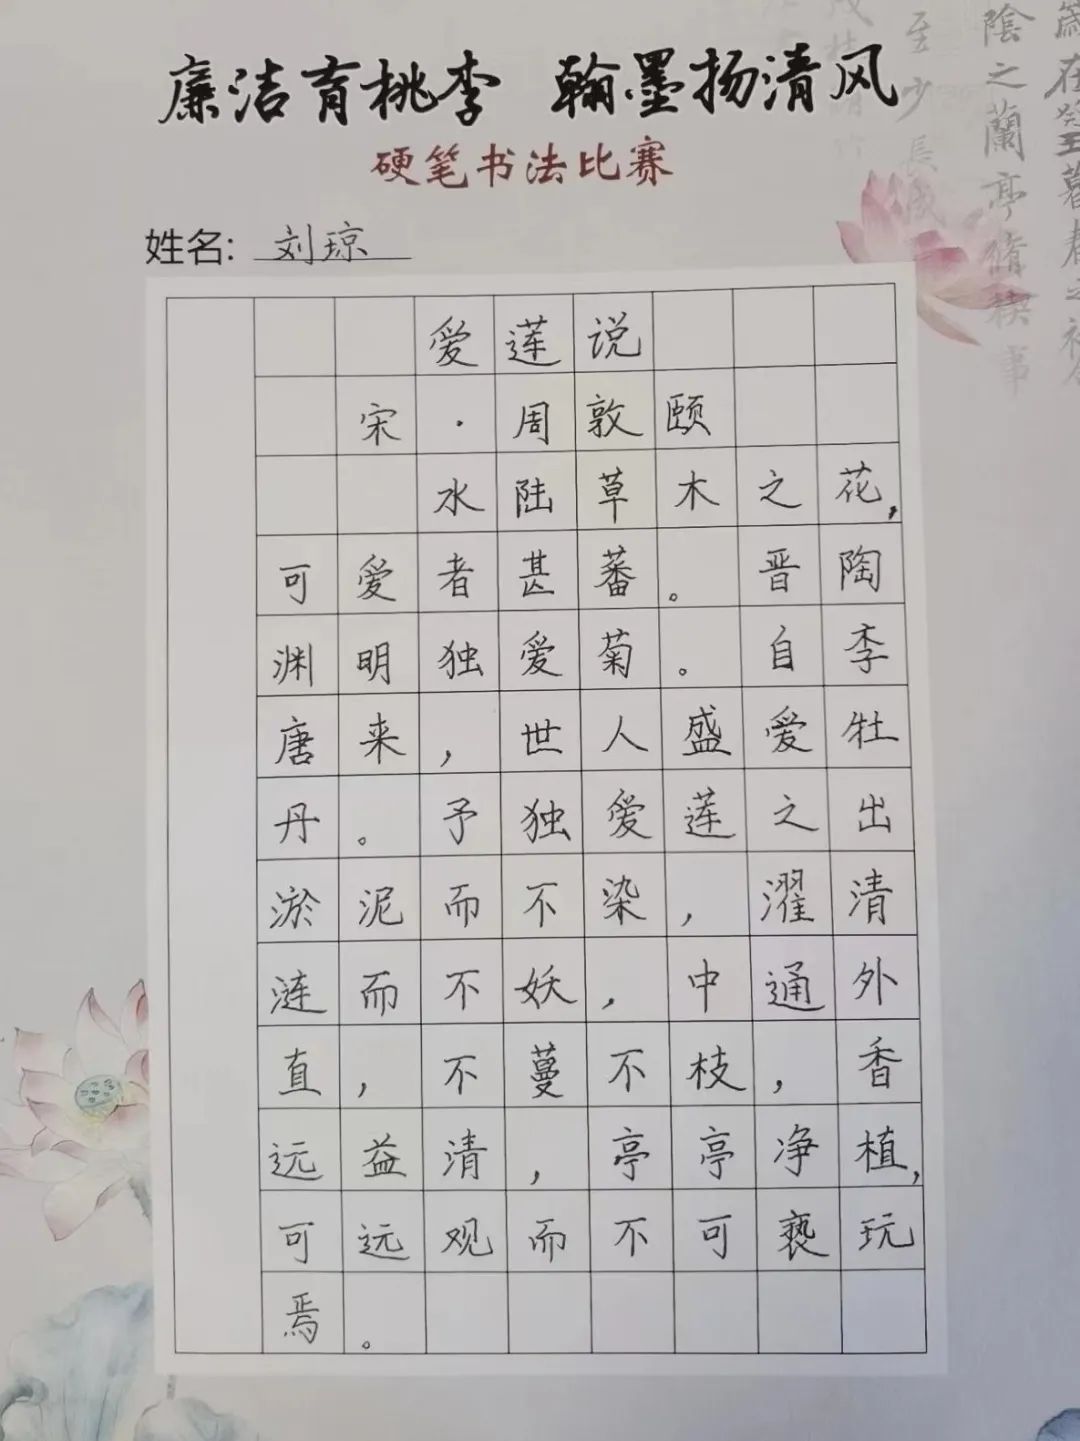 廉洁育桃李 翰墨扬清风
硬笔书法比赛
姓名: 刘琼
爱莲说
宋·周敦颐
水陆草木之花,
可爱者甚蕃。晋陶
渊明独爱菊。自李
唐来,世人盛爱牡
丹。予独爱莲之出
淤泥而不染,濯清
涟而不妖,中通外
直,不蔓不枝,香
远益清,亭亭净植,
可远观而不可亵玩
焉。
至少長咸
陰之蘭亭脩禊事
在癸丑暮春之初